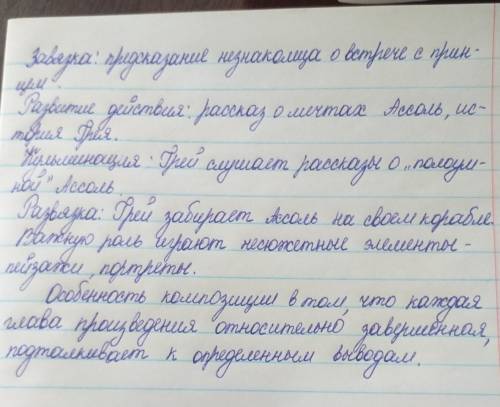 Завязка: предсказание незнакомца о встрече с прин-
цем.
Развитие действия: рассказ о мечтах Ассоль, ис-
тория Грея.
Кульминация: Грей слушает рассказы о „полоум-
ной" Ассоль.
Развязка: Грей забирает Ассоль на своем корабле.
Важную роль играют несюжетные элементы -
пейзажи, портреты.
Особенность композиции в том, что каждая
глава произведения относительно завершенная,
подталкивает к определенным выводам.